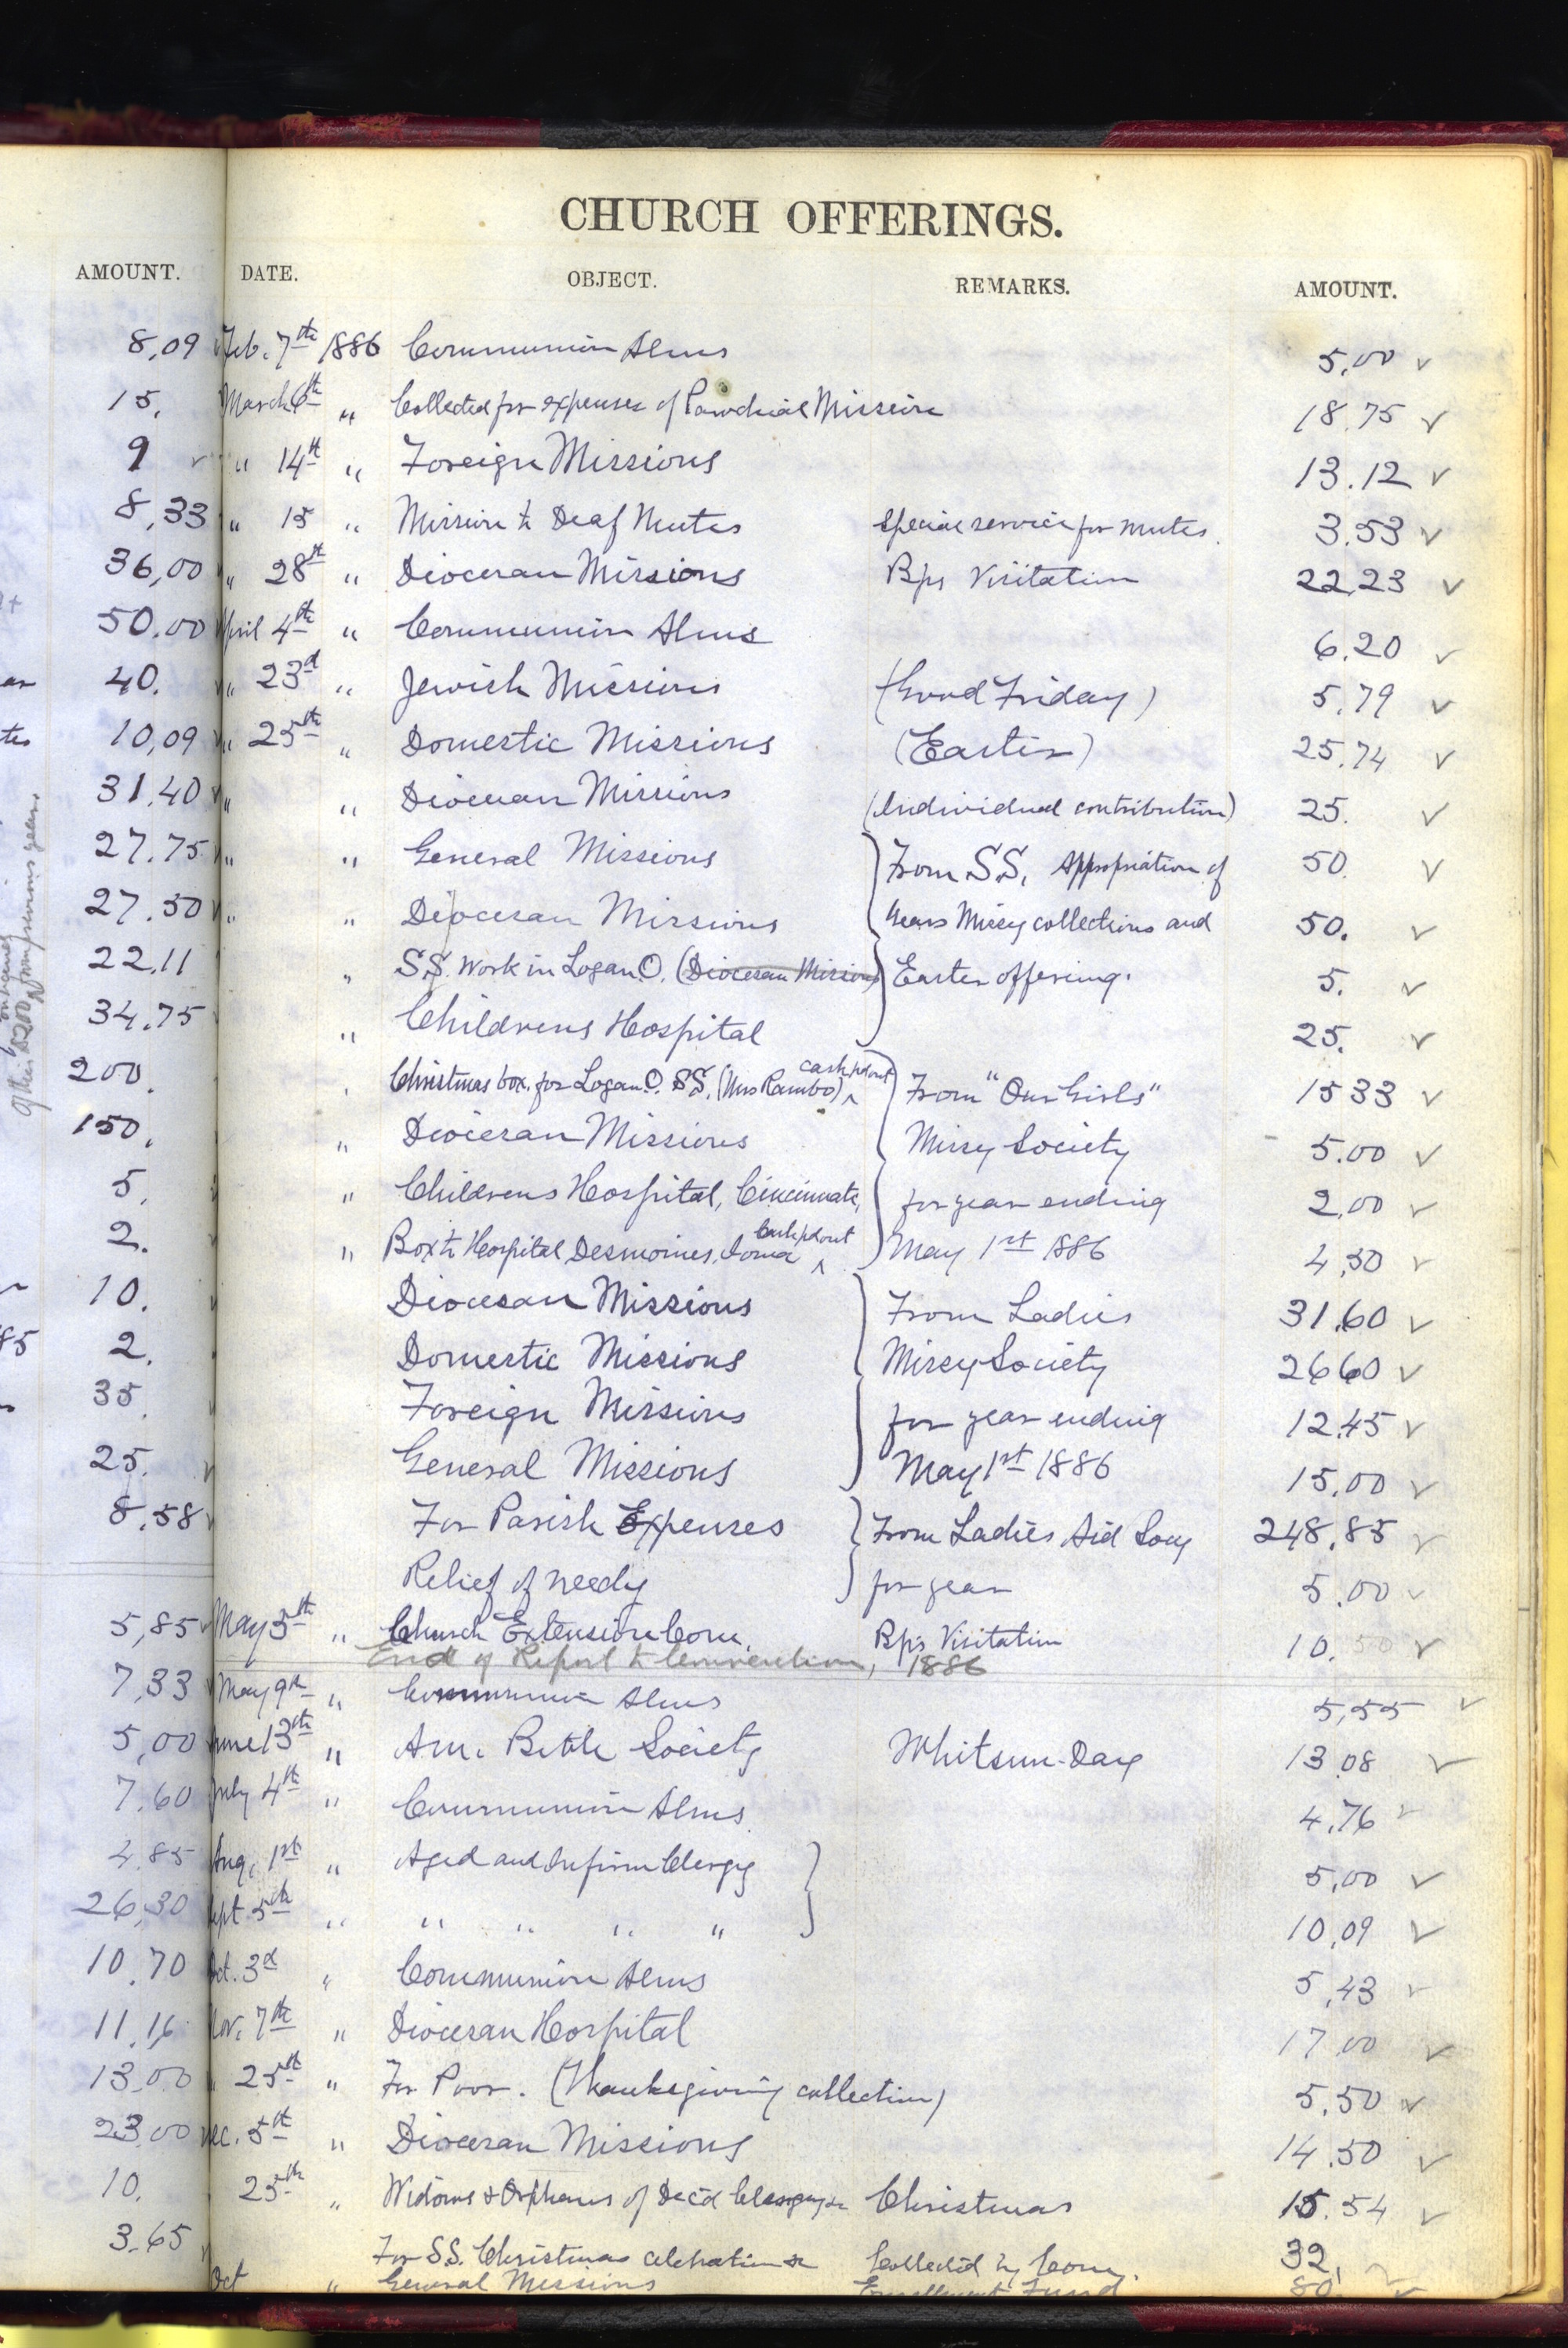 CHURCH OFFERINGS.
AMOUNT. DATE. OBJECT. REMARKS. AMOUNT.
8,09 Feb. 7th 1886 Communion Alms 5,00 ✓
15. March 6th " Collected for expenses of Parochial Mission 18.75 ✓
9 ✓ " 14th " Foreign Missions 13.12 ✓
8,33 " 15 " Mission to Deaf Mutes Special service for mutes. 3.53 ✓
36,00 " 28th " Diocesan Missions Bps Visitation 22,23 ✓
50.00 April 4th " Communion Alms 6.20 ✓
40. " 23d " Jewish Missions (Good Friday) 5.79 ✓
10,09 " 25th " Domestic Missions (Easter) 25.74 ✓
31.40 " " Diocesan Missions (Individual contribution) 25. ✓
27.75 " " General Missions From S.S. Appropriation of 50. ✓
27.50 " " Diocesan Missions Years Missy collections and 50. ✓
22.11 " S.S. Work in Logan O. (Diocesan Missions) Easter offering. 5. ✓
34.75 " Childrens Hospital 25. ✓
200. " Christmas box for Logan O. S.S. (Mrs Rambo) cash pd out From "Our Girls" 15 33 ✓
150. " Diocesan Missions Missy Society 5.00 ✓
5. " Childrens Hospital, Cincinnati, for year ending 2,00 ✓
2. " Box to Hospital Desmoines, Iowa Cash pd out May 1st 1886 4,30 ✓
10. Diocesan Missions From Ladies 31,60 ✓
85 2. Domestic Missions Missy Society 26 60 ✓
35. Foreign Missions for year ending 12.45 ✓
25. General Missions May 1st 1886 15,00 ✓
8.58 For Parish Expenses From Ladies Aid Socy 248,85 ✓
Relief of needy for year 5.00 ✓
5,85 May 5th " Church Extension Com. Bp's Visitation 10.50 ✓
End of Report to Convention, 1886
7,33 May 9th " Communion Alms 5,55 ✓
5,00 June 13th " Am. Bible Society Whitsun-Day 13 08 ✓
7.60 July 4th " Communion Alms 4,76 ✓
4.85 Aug. 1st " Aged and Infirm Clergy 5,00 ✓
26,30 Sept 5th " " " " " 10,09 ✓
10.70 Oct. 3d " Communion Alms 5,43 ✓
11,16 Nov. 7th " Diocesan Hospital 17 00 ✓
13,00 " 25th " For Poor. (Thanksgiving collection) 5,50 ✓
23,00 Dec. 5th " Diocesan Missions 14.50 ✓
10. 25th " Widows & Orphans of Dec'd Clergymen Christmas 15.54 ✓
3.65 For S.S. Christmas celebration Collected by Com. 32.
Oct " General Missions Enrollment Fund 80 ✓